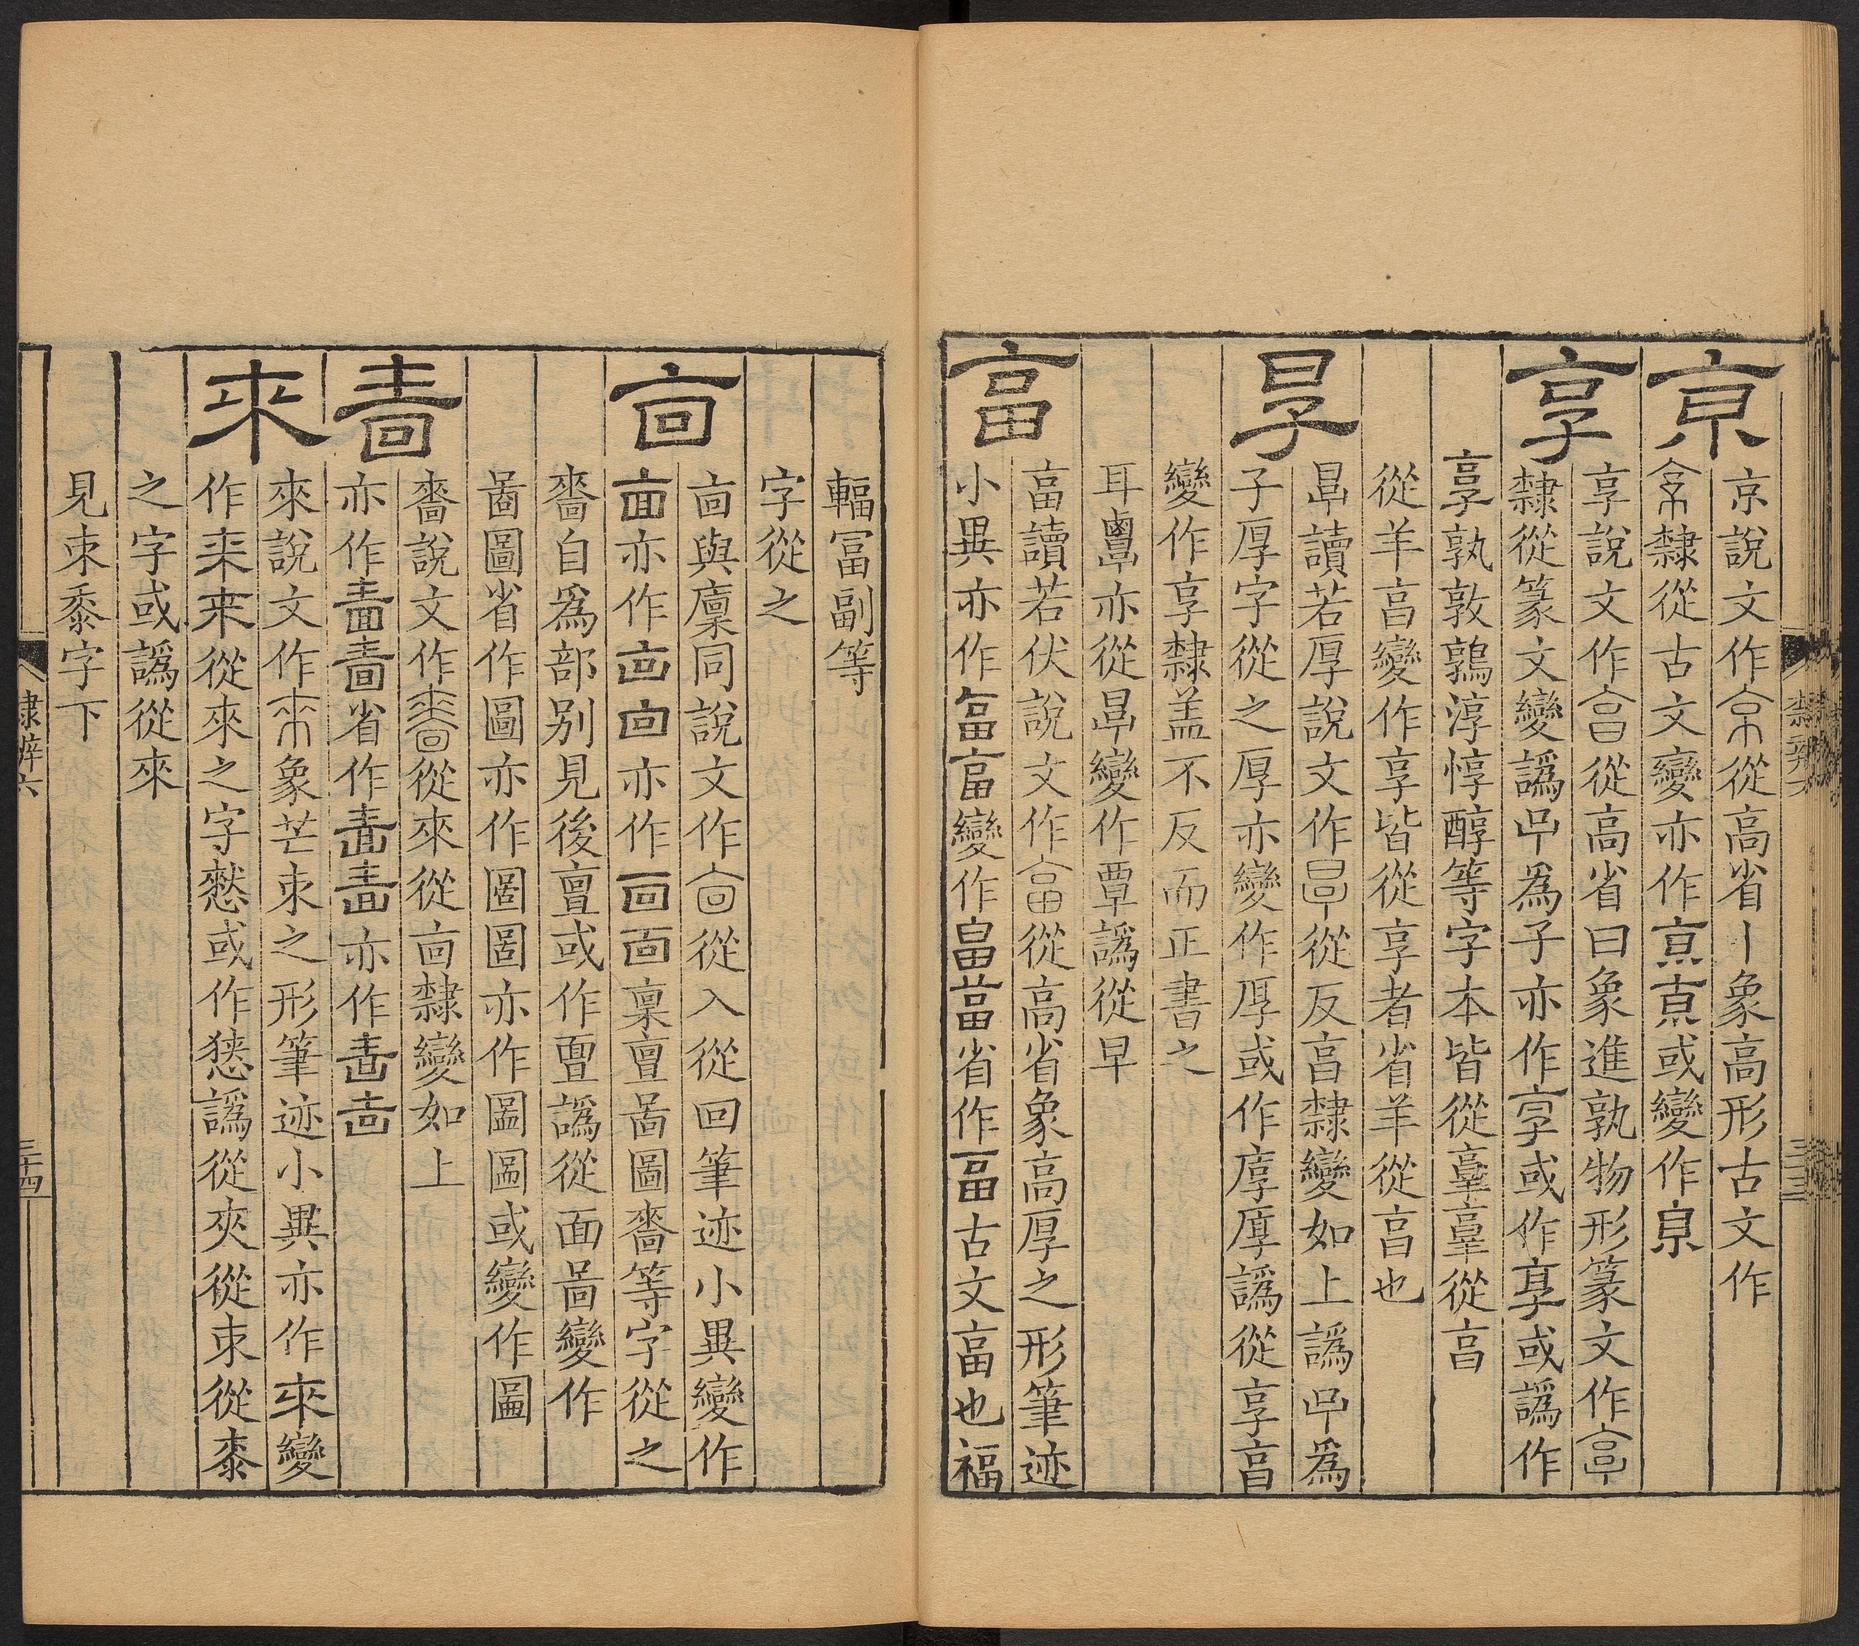 京
京說文作從高省丨象高形古文作
隸從古文變亦作亰亰或變作𠅃
享
享說文作從高省曰象進孰物形篆文作
隸從篆文變譌𠯑爲子亦作享或作享或譌作
享孰敦鶉淳惇醇等字本皆從𦎫𦎫從㐭
從羊㐭變作享皆從享者省羊從㐭也
𣆪
𣆪讀若厚說文作從反㐭隸變如上譌𠯑爲
子厚字從之厚亦變作厚或作㢆厚譌從享㐭
變作享隸蓋不反而正書之
耳亦從𣆪變作覃譌從早
畗
畗讀若伏說文作從高省象高厚之形筆迹
小異亦作畗畗變作畐畐省作畐古文畗也福
輻冨副等
字從之
㐭
㐭與廩同說文作從入從回筆迹小異變作
亦作亦作稟亶啚圖嗇等字從之
嗇自爲部别見後亶或作亶譌從面啚變作
啚圖省作圖亦作圖亦作圖圖或變作圖
嗇
嗇說文作從來從㐭隸變如上
亦作嗇嗇省作嗇嗇亦作嗇嗇
來
來說文作象芒朿之形筆迹小異亦作來變
作来来從來之字憖或作憖譌從夾從朿從桼
之字或譌從來
見朿黍字下
隸辨六
三十四